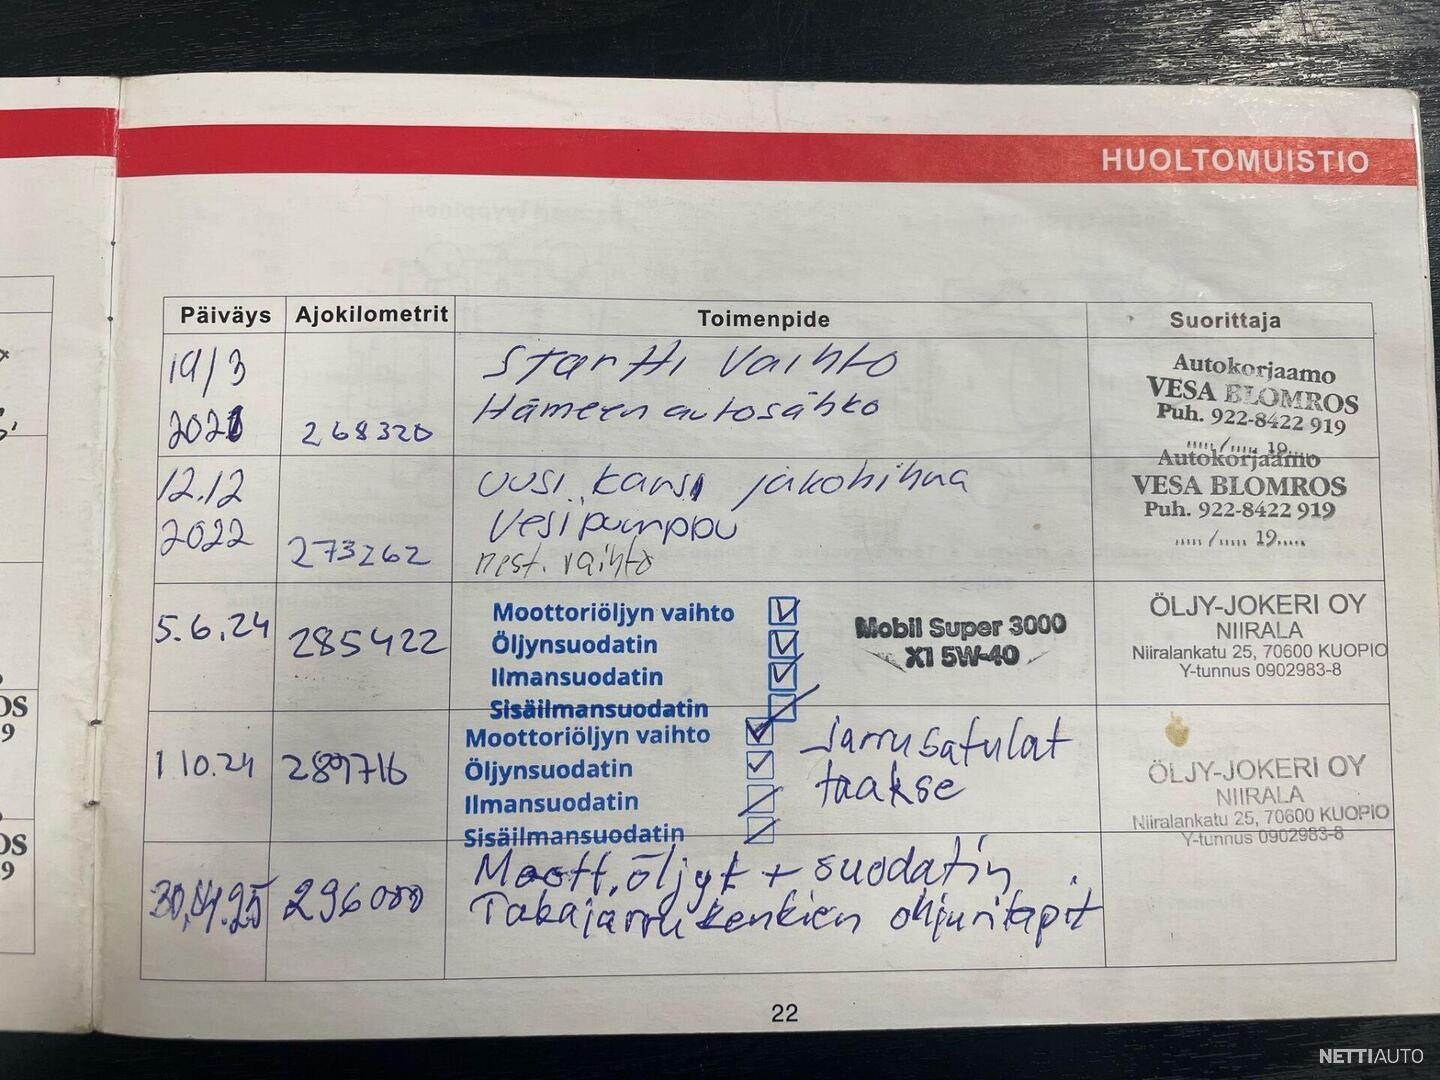 HUOLTOMUISTIO
Päiväys Ajokilometrit Toimenpide Suorittaja
19/3
2021 268320
Startti vaihto
Hämeen autosähkö
Autokorjaamo
VESA BLOMROS
Puh. 922-8422 919
...../..... 19.....
12.12
2022 273262
uusi kansi jakohihna
Vesipumppu
nest. vaihto
Autokorjaamo
VESA BLOMROS
Puh. 922-8422 919
...../..... 19.....
5.6.24 285422
Moottoriöljyn vaihto
Öljynsuodatin
Ilmansuodatin
Sisäilmansuodatin
Mobil Super 3000
X1 5W-40
ÖLJY-JOKERI OY
NIIRALA
Niiralankatu 25, 70600 KUOPIO
Y-tunnus 0902983-8
1 10.24 289716
Moottoriöljyn vaihto
Öljynsuodatin
Ilmansuodatin
Sisäilmansuodatin
Jarrusatulat
taakse
ÖLJY-JOKERI OY
NIIRALA
Niiralankatu 25, 70600 KUOPIO
Y-tunnus 0902983-8
30.4.25 296000
Moott, öljyt + suodatin
Takajarrukenkien ohjuritapit
OS
9
OS
9
22
NETTIAUTO